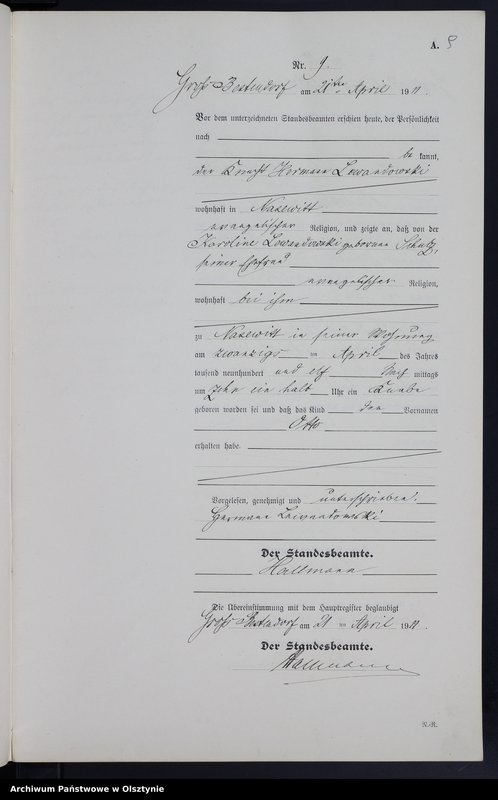 A. 9
Nr. 9.
Groß Bestendorf am 21ten April 1911.
Vor dem unterzeichneten Standesbeamten erschien heute, der Persönlichkeit
nach
be kannt,
der Knecht Hermann Lewandowski
wohnhaft in Naxewitt
evangelischer Religion, und zeigte an, daß von der
Karoline Lewandowski geborenen Schulz,
seiner Ehefrau
evangelischer Religion,
wohnhaft bei ihm
zu Naxewitt in seiner Wohnung
am zwanzigs ten April des Jahres
tausend neunhundert und elf Nach mittags
um zehn ein halb Uhr ein Knabe
geboren worden sei und daß das Kind den Vornamen
Otto
erhalten habe.
Vorgelesen, genehmigt und unterschrieben.
Hermann Lewandowski
Der Standesbeamte.
Hallmann
Die Übereinstimmung mit dem Hauptregister beglaubigt
Groß Bestendorf am 21 ten April 1911.
Der Standesbeamte.
Hallmann
N.-R.
Archiwum Państwowe w Olsztynie